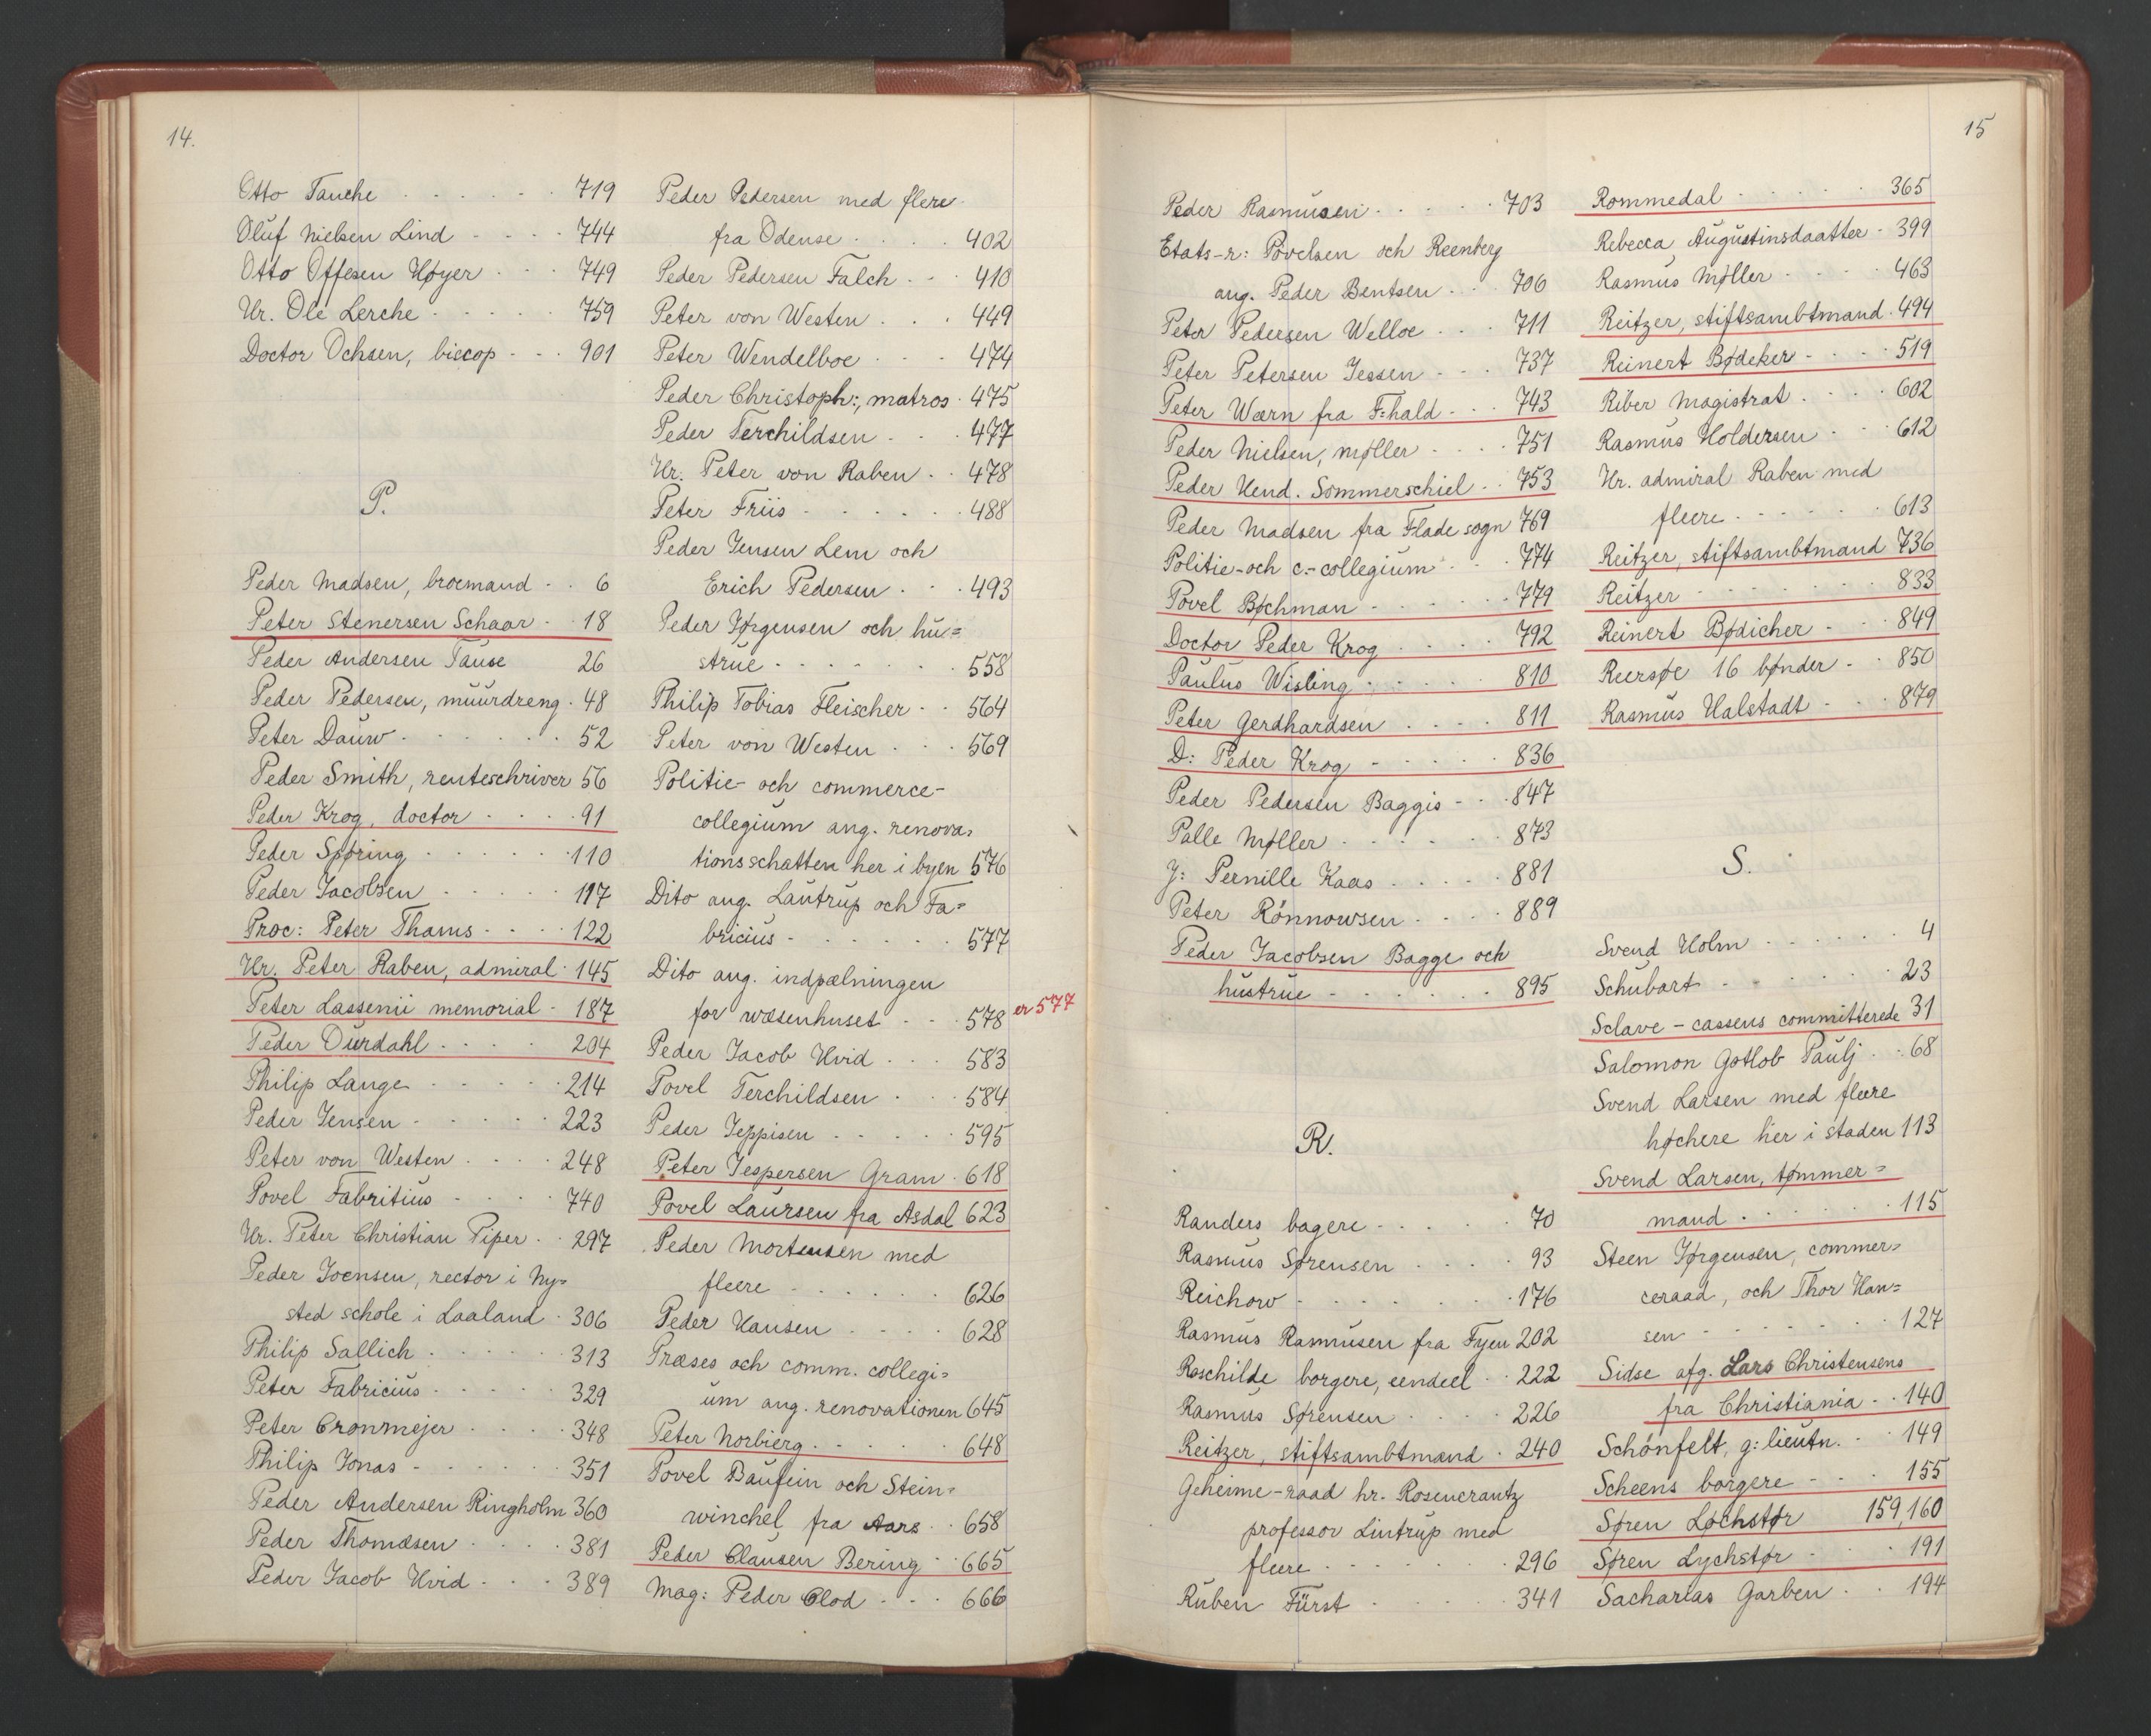 14.
Otto Tauche . . . . . . 719
Oluf Nielsen Lind - - - - 744
Otto Offesen Høyer . . . 749
Hr. Ole Lerche . . . . . 759
Doctor Ochsen, biscop - - . 901
P.
Peder Madsen, broemand . . 6
Peter Stenersen Schaar . . 18
Peder Andersen Tause 26
Peder Pedersen, muurdreng . 48
Peter Dauw . . . . . . 52
Peder Smith, renteschriver 56
Peder Krog, doctor . . . . 91
Peder Spøring . . . . . . 110
Peder Jacobsen . . . . . 117
Proc: Peter Thams . . . . 122
Hr. Peter Raben, admiral . 145
Peter Lassenii memorial . 187
Peder Durdahl . . . . 204
Philip Lange . . . . . 214
Peder Jensen . . . . . 223
Peter von Westen . . . . 248
Povel Fabritius - . . . 740
Hr. Peter Christian Piper . . 297
Peder Joensen, rector i Ny=
sted schole i Laaland . 306
Philip Sallich . . . . . 313
Peter Fabricius . . . . . 329
Peter Cronmejer . . . . 348
Philip Jonas - . . . . . 351
Peder Andersen Ringholm 360
Peder Thomæsen . . . . 381
Peder Jacob Hvid . . . 389
Peder Pedersen med flere
fra Odense . . . . 402
Peder Pedersen Falch . . . 410
Peter von Westen . . . 449
Peter Wendelboe . . . . 474
Peder Christoph:, matros . 475
Peder Terchildsen . . . 477
Hr. Peter von Raben . . 478
Peter Friis . . . . . . 488
Peder Jensen Lem och
Erich Pedersen . . . 493
Peder Jørgensen och hu=
strue . . . . . . . 558
Philip Tobias Fleischer . . 564
Peter von Westen . . . 569
Politie- och commerce-
collegium ang. renova=
tionsschatten her i byen 576
Dito ang. Lautrup och Fa=
bricius - . . . . . 577
Dito ang. indpælningen
for wæsenhuset . . . 578 er 577
Peder Jacob Hvid . . . 583
Povel Terchildsen . . . 584
Peder Jeppisen . . . . . 595
Peter Jespersen Gram . 618
Povel Laursen fra Asdal 623
Peder Mortensen med
fleere . . . . . . 626
Peder Hansen . . . . 628
Præses och comm. collegi=
um ang. renovationen 645
Peter Norbierg . . . . . 648
Povel Baufein och Stein=
winchel fra Aars . . 658
Peder Clausen Bering . . 665
Mag: Peder Clod . . . 666
15
Peder Rasmusen . . . . . 703
Etats-r: Povelsen och Reenberg
ang. Peder Bentsen . . . 706
Peter Pedersen Welloe . . . 711
Peter Petersen Jessen - - . 737
Peter Wærn fra F:hald . . . 743
Peder Nielsen, møller . . . . 751
Peder Hend. Sommerschiel . . 753
Peder Madsen fra Flade sogn 769
Politie- och c.-collegium . . . 774
Povel Bøchman . . . . . . 779
Doctor Peder Krog . . . . 792
Paulus Wisling . . . . . 810
Peter Gerdhardsen . . . . 811
D: Peder Krog - . . . . 836
Peder Pedersen Baggis - . . 847
Palle Møller . . . . . . 873
J: Pernille Kaas . . . . . 881
Peter Rönnowsen . . . . 889
Peder Jacobsen Bagge och
hustrue - . . . . . . 895
R.
Randers bagere . . . . . 70
Rasmus Sørensen . . . . 93
Reichow - . . . . . . 176
Rasmus Rasmusen fra Fyen 202
Roschilde borgere, eendeel . . 222
Rasmus Sørensen . . . . 226
Reitzer, stiftsambtmand . 240
Geheime-raad hr. Rosencrantz
professor Lintrup med
fleere . . . . . . 296
Ruben Fürst . . . . . 341
Rommedal . . . . . 365
Rebecca Augustinsdaatter . 399
Rasmus Møller . . . . 463
Reitzer, stiftsambtmand . 494
Reinert Bødeker . . . . 519
Riber Magistrat . . . . 602
Rasmus Holdersen . . . 612
Hr. admiral Raben med
fleere . . . . . . 613
Reitzer, stiftsambtmand 736
Reitzer . . . . . . . 833
Reinert Bødicher . . . 849
Reersøe 16 bønder . . 850
Rasmus Halstadt . . . 879
S.
Svend Holm . . . . . . 4
Schubart . . . . . . 23
Sclave-cassens committerede 31
Salomon Gotlob Paulj . . 68
Svend Larsen med fleere
høchere her i staden 113
Svend Larsen, tømmer=
mand . . . . . . 115
Steen Jørgensen, commer=
ceraad, och Thor Han=
sen - . . . . . . 127
Sidse afg. Lars Christensens
fra Christiania . . 140
Schönfelt, g: lieutn. . . 149
Scheens borgere - . . . 155
Søren Løchstør 159,160
Søren Lychstør . . . . 191
Sacharias Garben . . 194